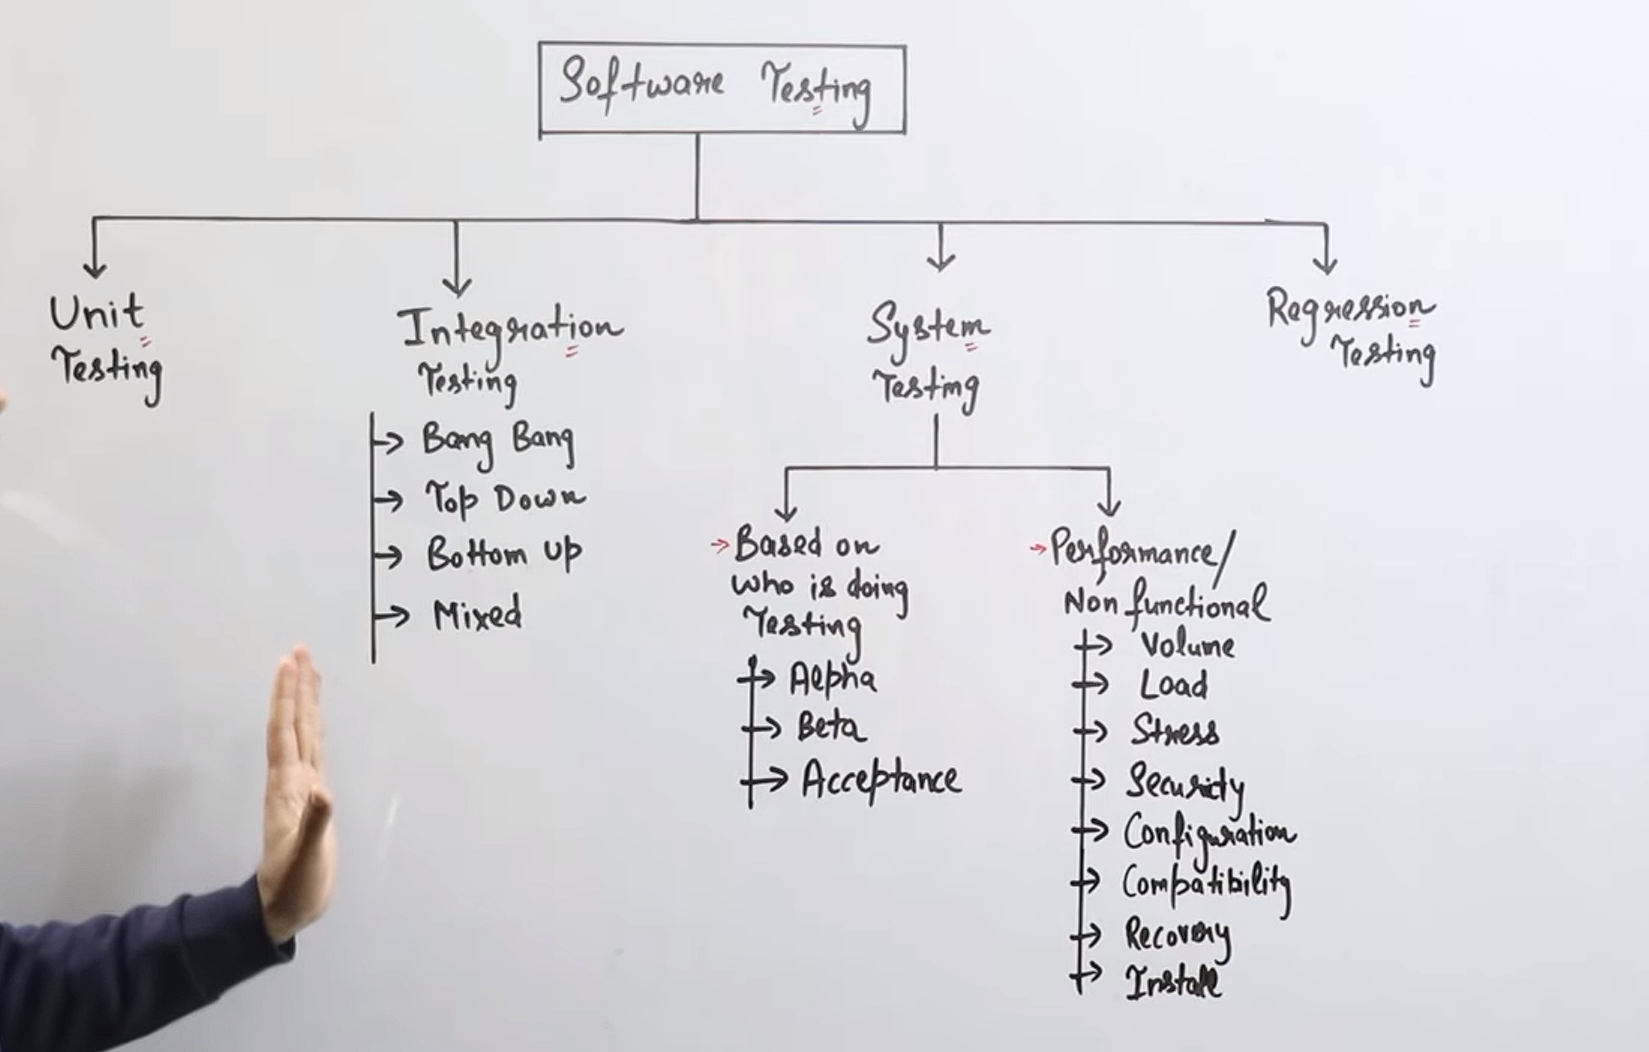 Software Testing
Unit
Testing
Integration
Testing
Bang Bang
Top Down
Bottom Up
Mixed
System
Testing
Based on
who is doing
Testing
Alpha
Beta
Acceptance
Performance/
Non functional
Volume
Load
Stress
Security
Configuration
Compatibility
Recovery
Install
Regression
Testing